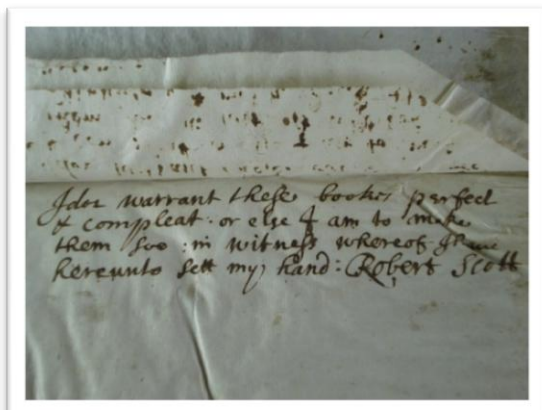 I doe warrant these bookes perfect
& compleat. or else I am to make
them soo: in witness whereof I have
hereunto sett my hand: Robert Scott